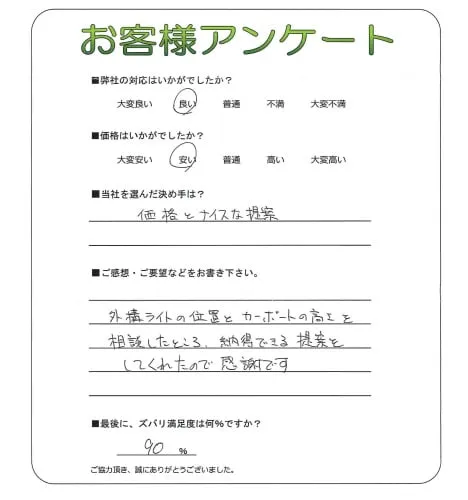 お客様アンケート
■弊社の対応はいかがでしたか?
大変良い 良い 普通 不満 大変不満
■価格はいかがでしたか?
大変安い 安い 普通 高い 大変高い
■当社を選んだ決め手は?
価格とナイスな提案
■ご感想・ご要望などをお書き下さい。
外構ライトの位置とカーポートの高さを
相談したところ、納得できる提案を
してくれたので感謝です
■最後に、ズバリ満足度は何%ですか?
90 %
ご協力頂き、誠にありがとうございました。